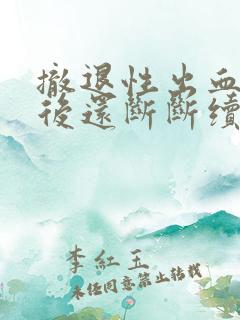 撤退性出血
後還斷斷續
李紅玉
未经同意禁止转载